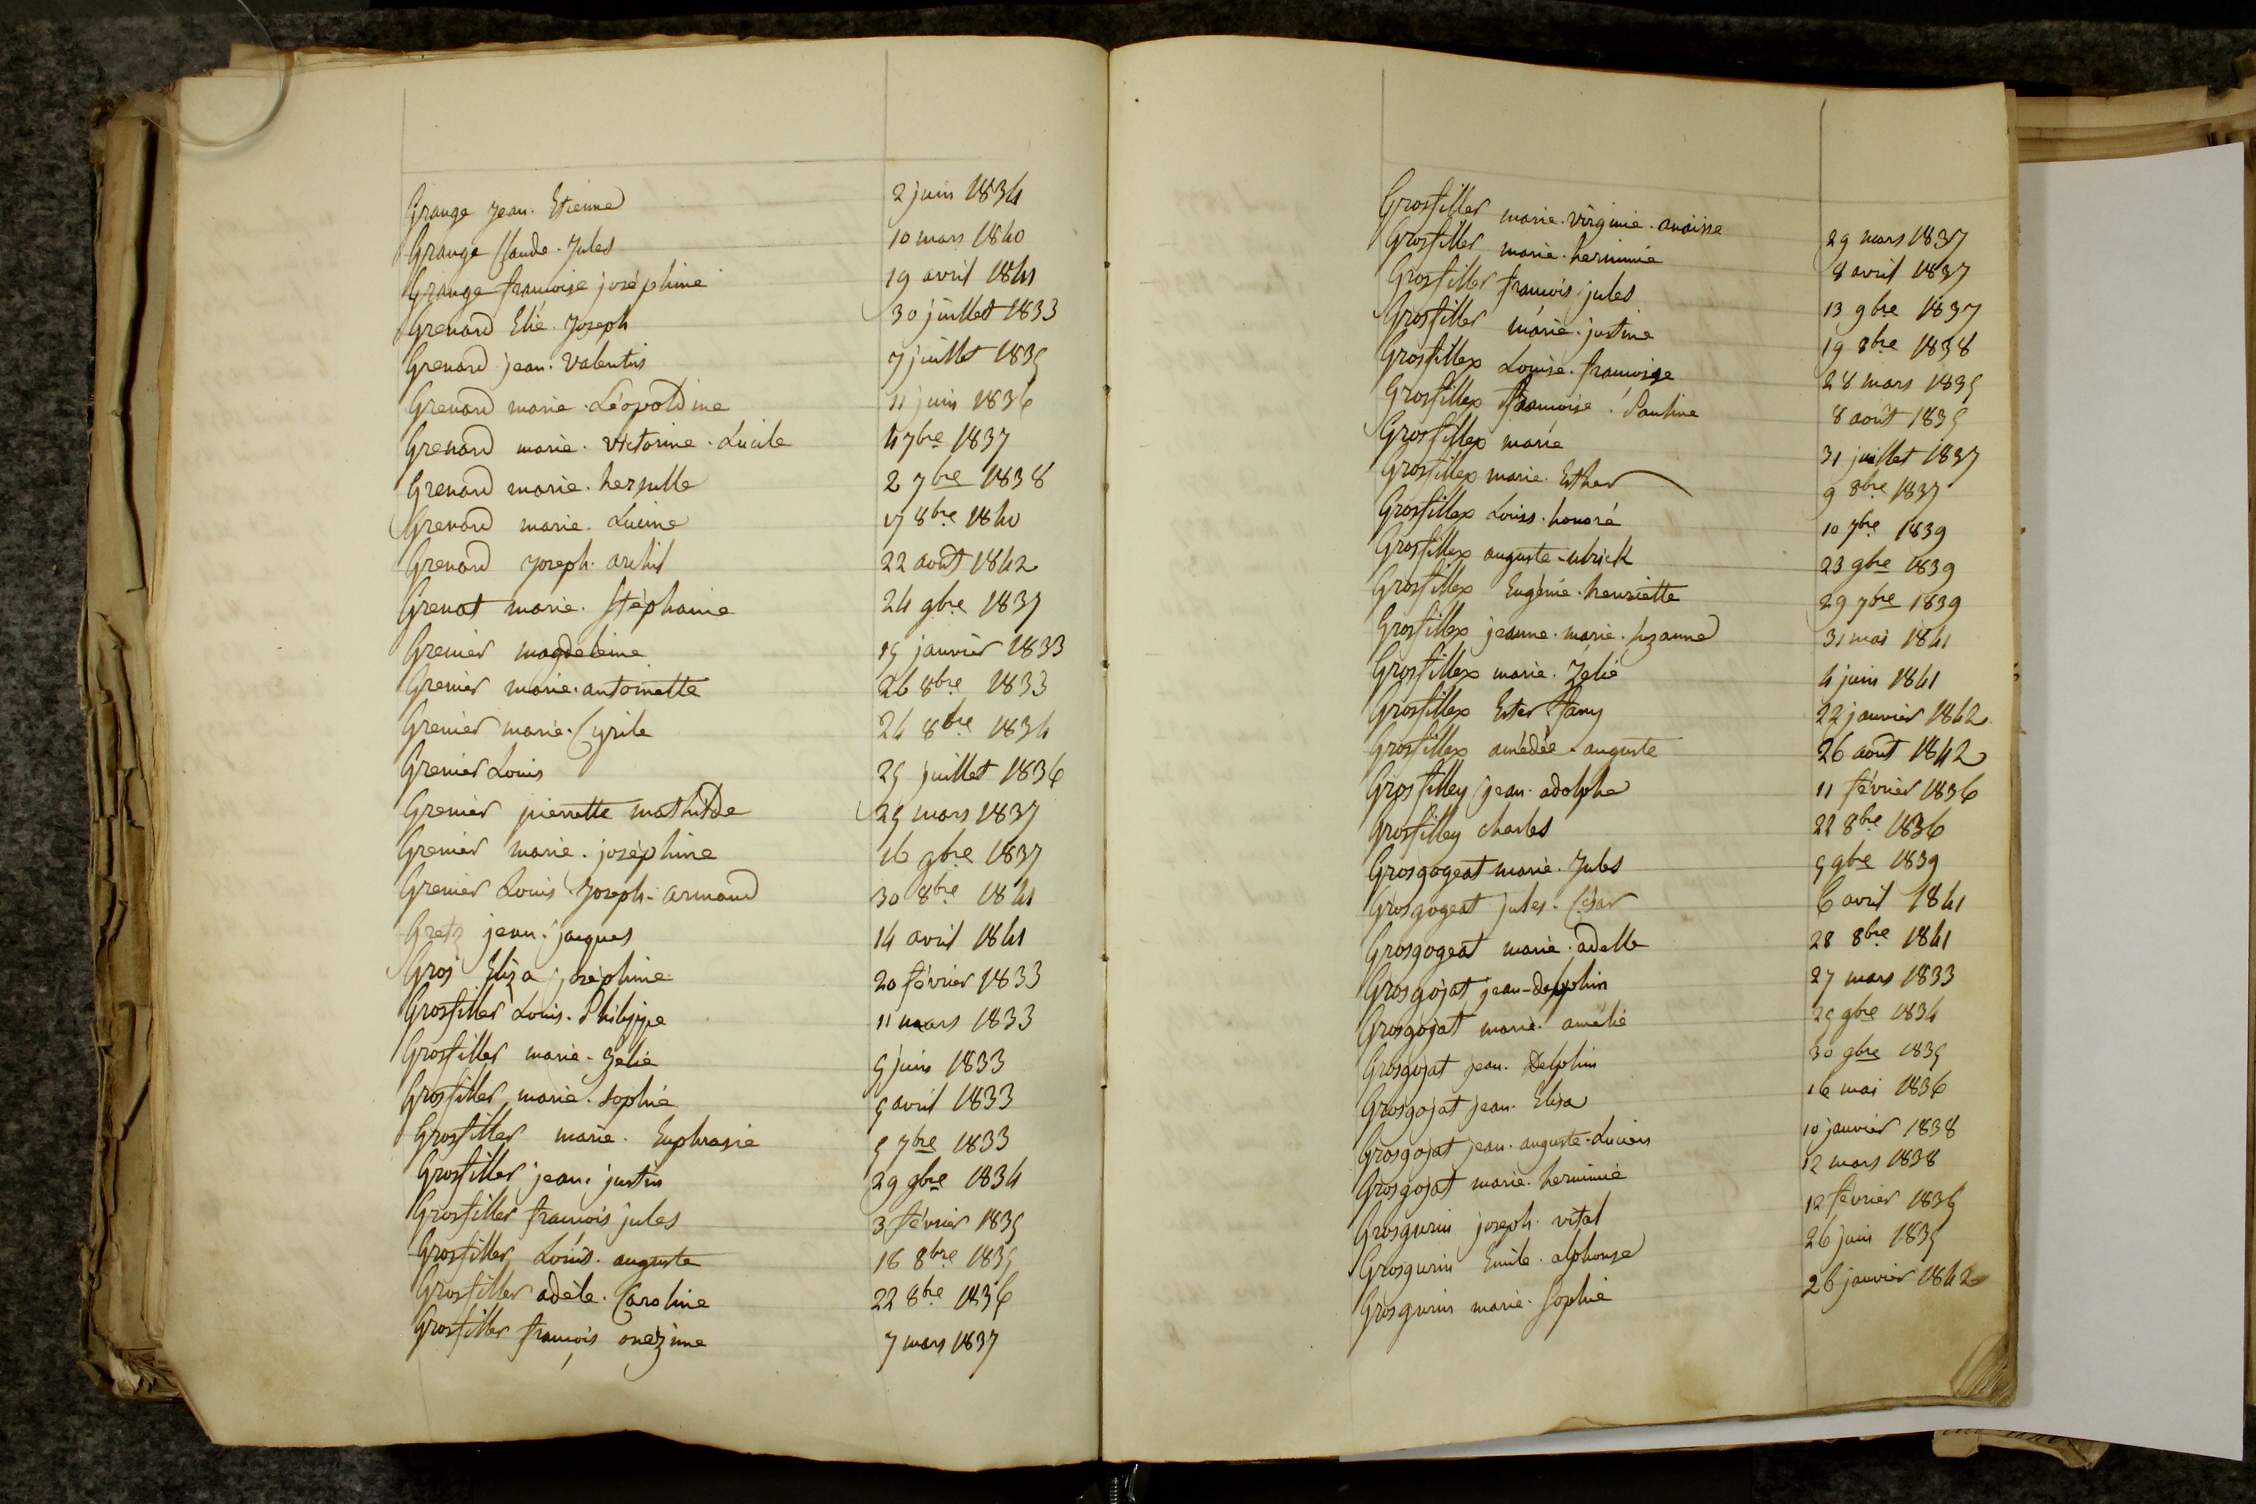 Grange Jean. Etienne 2 juin 1834
Grange Claude. Jules 10 mars 1840
Grange françoise joséphine 19 avril 1841
Grenard Elie. Joseph 30 juillet 1833
Grenard jean. Valentin 7 juillet 1835
Grenard marie. Léopoldine 11 juin 1836
Grenard marie. victorine. Lucile 4 7bre 1837
Grenard marie. 2 7bre 1838
Grenard marie. Lucine 17 8bre 1840
Grenard Joseph. 22 août 1842
Grenat marie. Stéphanie 24 9bre 1837
Grenier magdeleine 15 janvier 1833
Grenier marie. antoinette 26 8bre 1833
Grenier marie. Cyrile 24 8bre 1834
Grenier Louis 25 juillet 1836
Grenier pierrette mathilde 25 mars 1837
Grenier marie. joséphine 16 9bre 1837
Grenier Louis Joseph. armand 30 8bre 1841
Gretz jean. jacques 14 avril 1841
Gros Eliza joséphine 20 février 1833
Grosfiller Louis. Philippe 11 mars 1833
Grosfiller marie. Zélie 5 juin 1833
Grosfiller marie. sophie 5 avril 1833
Grosfiller marie. Euphrasie 5 7bre 1833
Grosfiller jean. justin 29 9bre 1834
Grosfiller françois jules 3 février 1835
Grosfiller Louis. auguste 18 8bre 1835
Grosfiller adèle. Caroline 22 8bre 1836
Grosfiller françois onézime 7 mars 1837
Grosfiller marie. virginie. anaisse 29 mars 1837
Grosfiller marie. herminie 8 avril 1837
Grosfiller françois jules 13 9bre 1837
Grosfiller marie. justine 19 8bre 1838
Grosfillex Louise. françoise 28 mars 1835
Grosfillex françoise. Pauline 8 août 1835
Grosfillex marie 31 juillet 1837
Grosfillex marie. Esther 9 8bre 1837
Grosfillex Louis. honoré 10 7bre 1839
Grosfillex auguste. ulrick 23 9bre 1839
Grosfillex Eugénie. henriette 29 7bre 1839
Grosfillex jeanne. marie. suzanne 31 mai 1841
Grosfillex marie. Zélie 4 juin 1841
Grosfillex Ester fany 22 janvier 1842
Grosfillex amédée. auguste 26 août 1842
Grosfilley jean. adolphe 11 février 1836
Grosfilley charles 22 8bre 1836
Grosgogeat marie. Jules 5 9bre 1839
Grosgogeat jules. César 6 avril 1841
Grosgogeat marie. adelle 28 8bre 1841
Grosgojat jean-delphin 27 mars 1833
Grosgojat marie. amélie 25 9bre 1834
Grosgojat jean. Delphin 30 9bre 1835
Grosgojat jean. Elisa 16 mai 1836
Grosgojat jean. auguste. Lucien 10 janvier 1838
Grosgojat marie. herminie 12 mars 1838
Grosgurin joseph. vital 12 février 1835
Grosgurin Emile. alphonse 26 juin 1835
Grosgurin marie. Sophie 26 janvier 1842